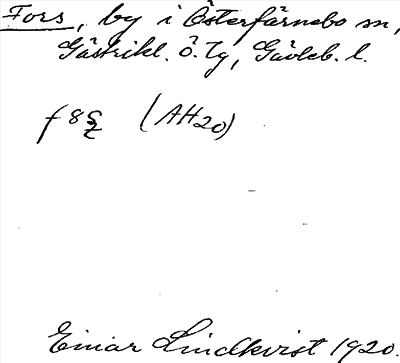 Fors, by i Österfärnebo sn,
Gästrikl. ö. Tg, Gävleb. l.
(AH20)
Einar Lindkvist 1920.